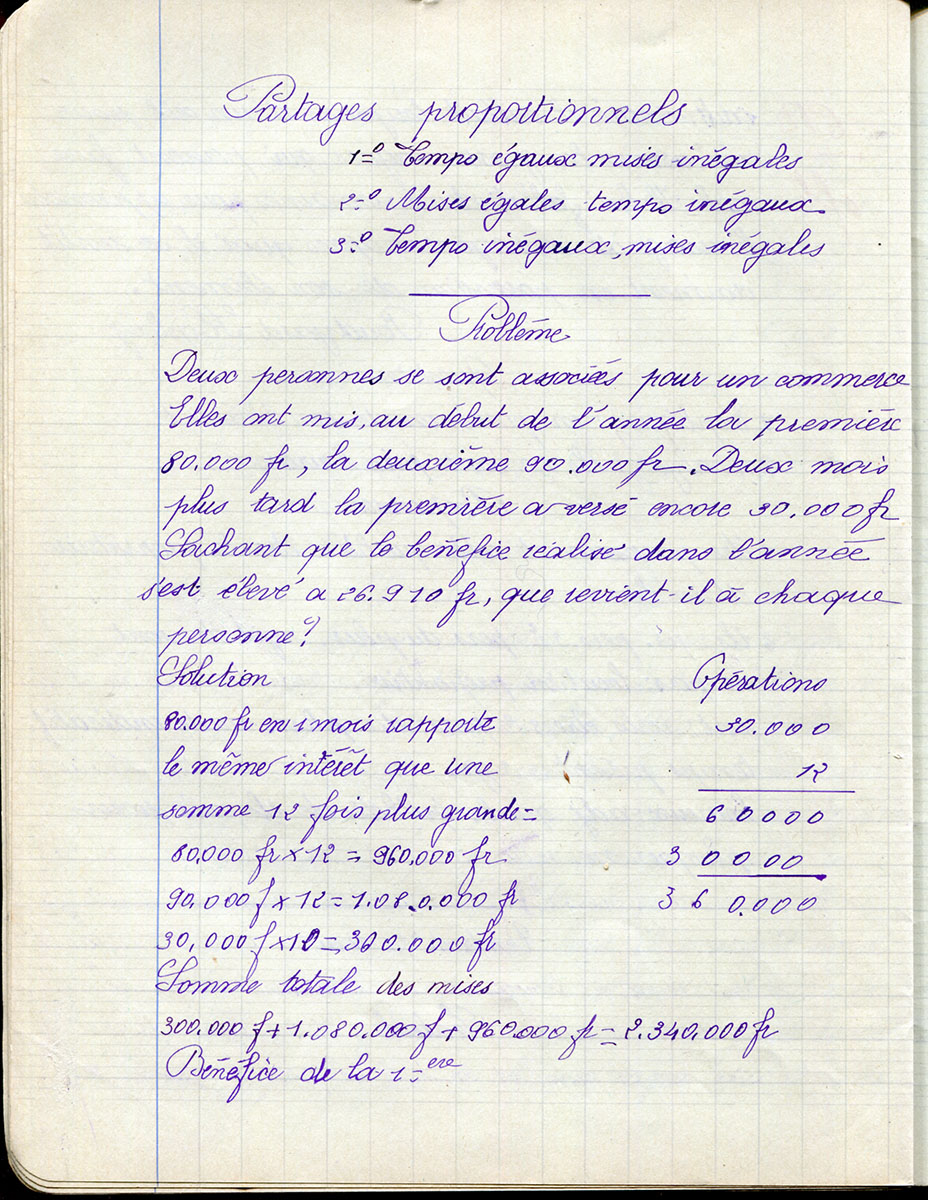 Partages proportionnels
1=º Temps égaux mises inégales
2=º Mises égales temps inégaux.
3=º Temps inégaux, mises inégales
Problème
Deux peronnes se sont associées pour un commerce
Elles ont mis, au début de l'année la première
80.000 fr, la deuxième 90.000 fr. Deux mois
plus tard la première a versé encore 30.000 fr
Sachant que le bénéfice réalisé dans l'année
s'est élevé a 26.910 fr, que revient-il à chaque
personne?
Solution
Opérations
80.000 fr en 1 mois rapporte
30.000
le même intérêt que une
12
somme 12 fois plus grande=
60000
80,000 fr x 12 = 960,000 fr
3 0000
90,000 f x 12 = 1.080.000 fr
3 6 0.000
30,000 f x 10 = 300.000 fr
Somme totale des mises
300.000 f + 1.080.000 f + 960.000 fr = 2.340.000 fr
Bénéfice de la 1=ere